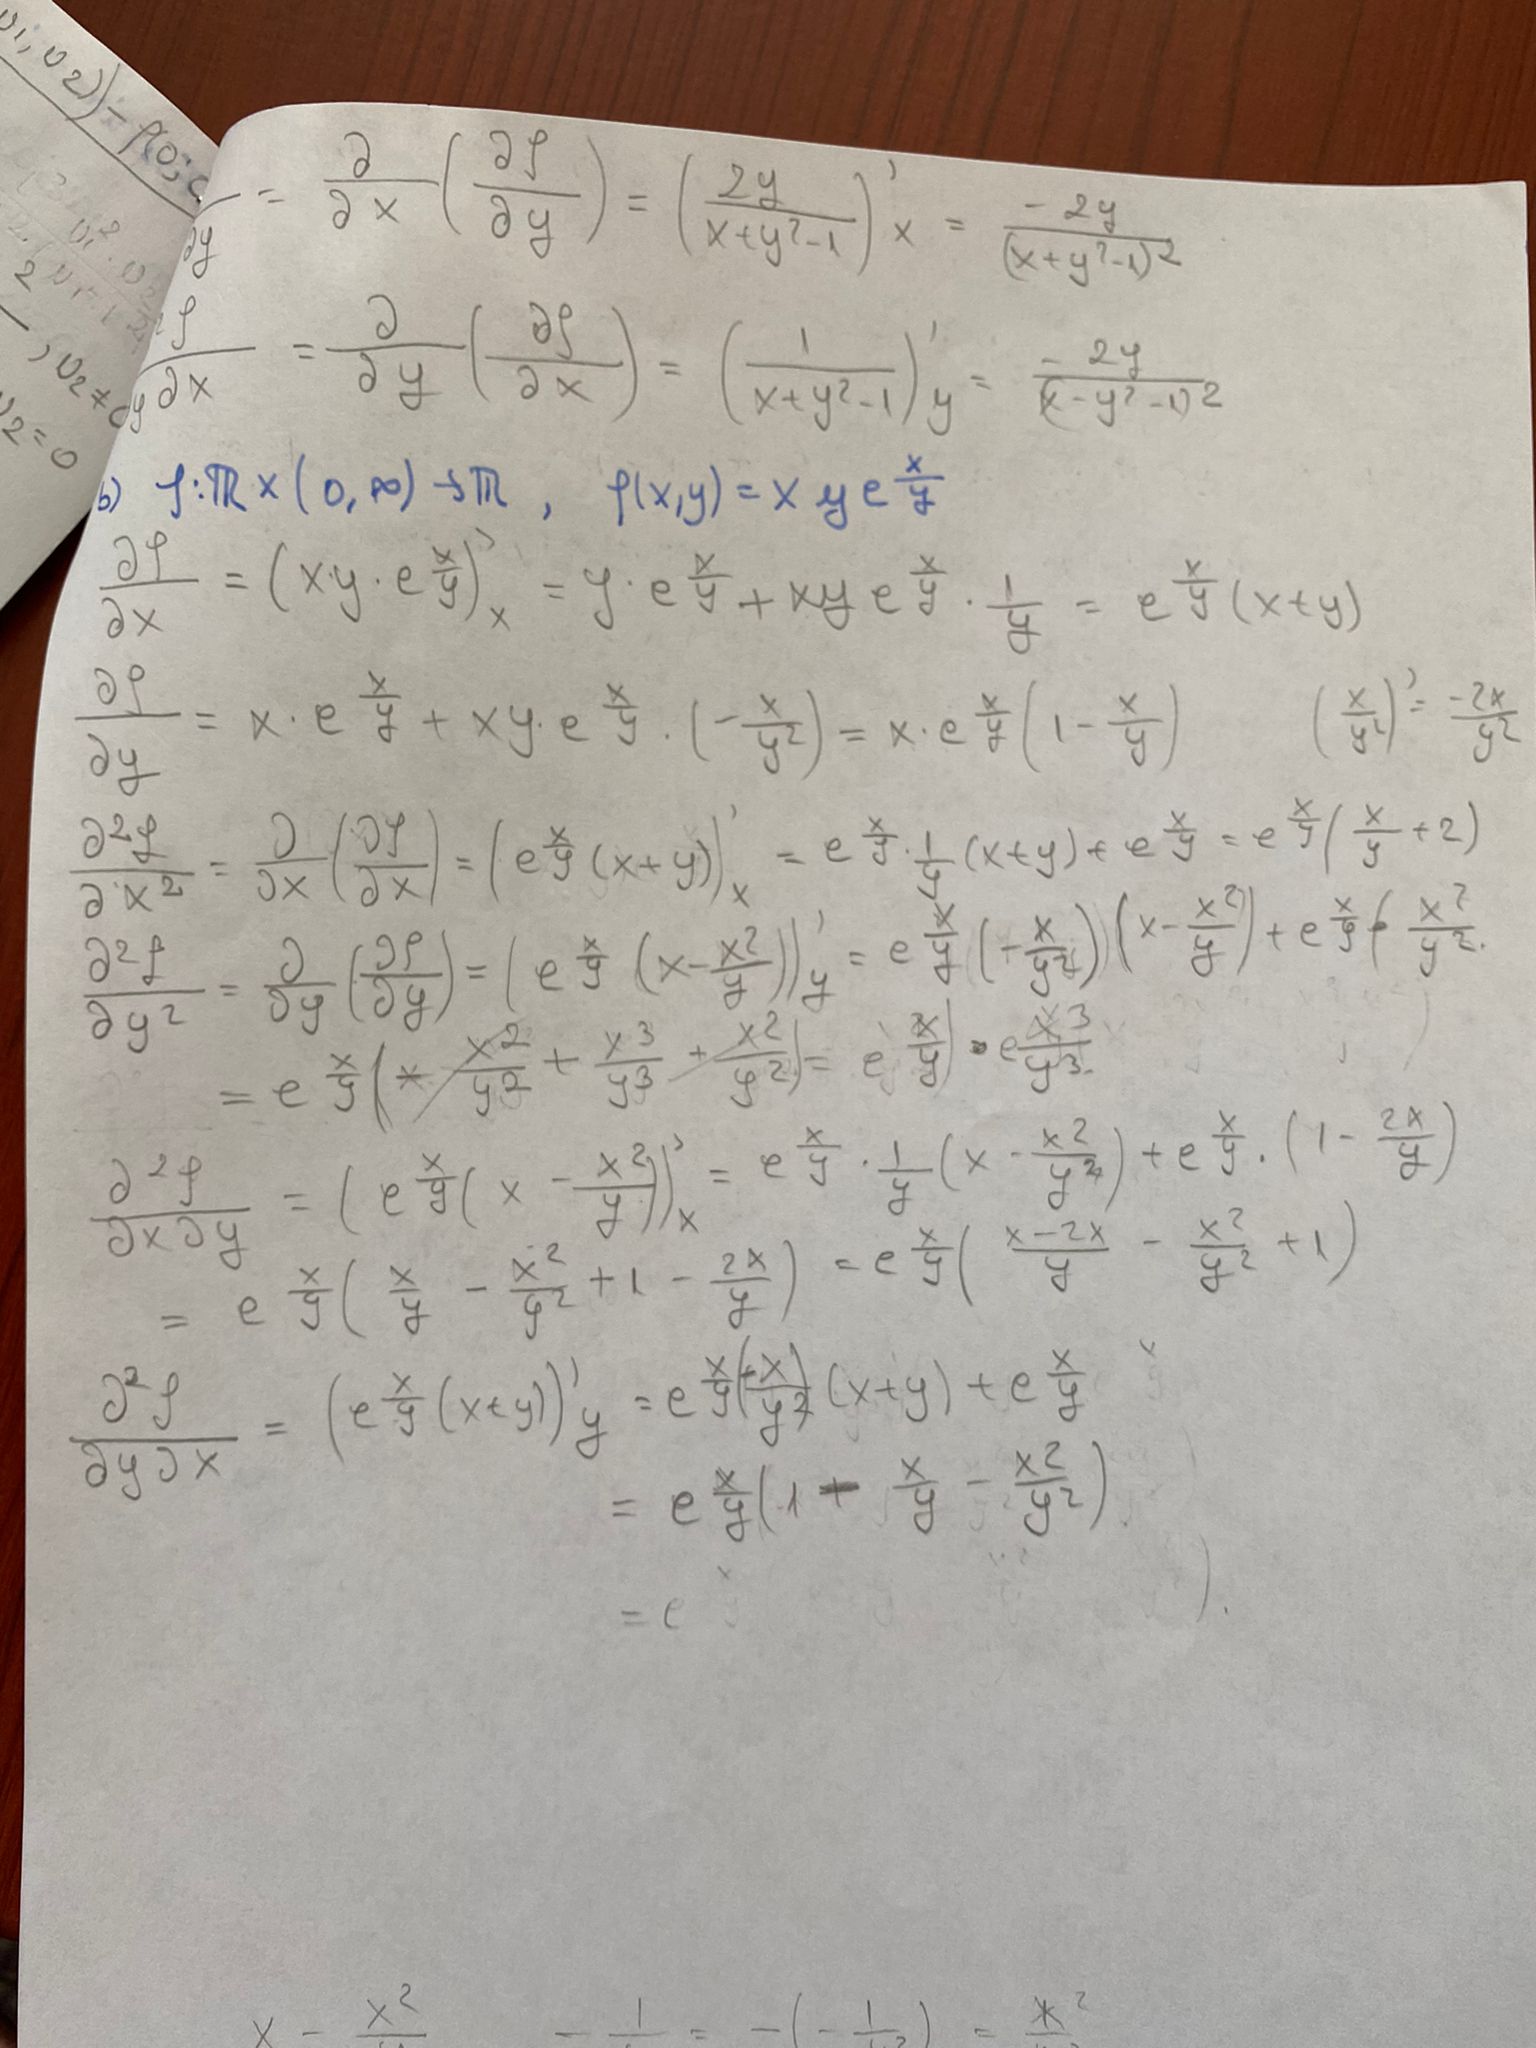 v1, v2)) - f(0,
v2 ≠ 0
v2 = 0
∂y = ∂/∂x (∂f/∂y) = (2y/(x+y²-1))'x = -2y/(x+y²-1)²
∂²f/∂y∂x = ∂/∂y (∂f/∂x) = (1/(x+y²-1))'y = -2y/(x-y²-1)²
b) f: ℝ x (0, ∞) → ℝ, f(x,y) = x y e^(x/y)
∂f/∂x = (x·y · e^(x/y))'x = y · e^(x/y) + xy e^(x/y) · 1/y = e^(x/y) (x+y)
∂f/∂y = x · e^(x/y) + xy · e^(x/y) · (-x/y²) = x · e^(x/y) (1 - x/y) (x/y²)' = -2x/y²
∂²f/∂x² = ∂/∂x (∂f/∂x) = (e^(x/y) (x+y))'x = e^(x/y) · 1/y (x+y) + e^(x/y) = e^(x/y) (x/y + 2)
∂²f/∂y² = ∂/∂y (∂f/∂y) = (e^(x/y) (x - x²/y))'y = e^(x/y) (-x/y²) (x - x²/y) + e^(x/y) · x²/y².
= e^(x/y) (- x²/y² + x³/y³ + x²/y²) = e^(x/y) · x³/y³.
∂²f/∂x∂y = (e^(x/y) (x - x²/y))'x = e^(x/y) · 1/y (x - x²/y²) + e^(x/y) · (1 - 2x/y)
= e^(x/y) (x/y - x²/y² + 1 - 2x/y) = e^(x/y) ((x-2x)/y - x²/y² + 1)
∂²f/∂y∂x = (e^(x/y) (x+y))'y = e^(x/y) (-x/y²) (x+y) + e^(x/y)
= e^(x/y) (1 - x/y - x²/y²).
= e ).
x - x²